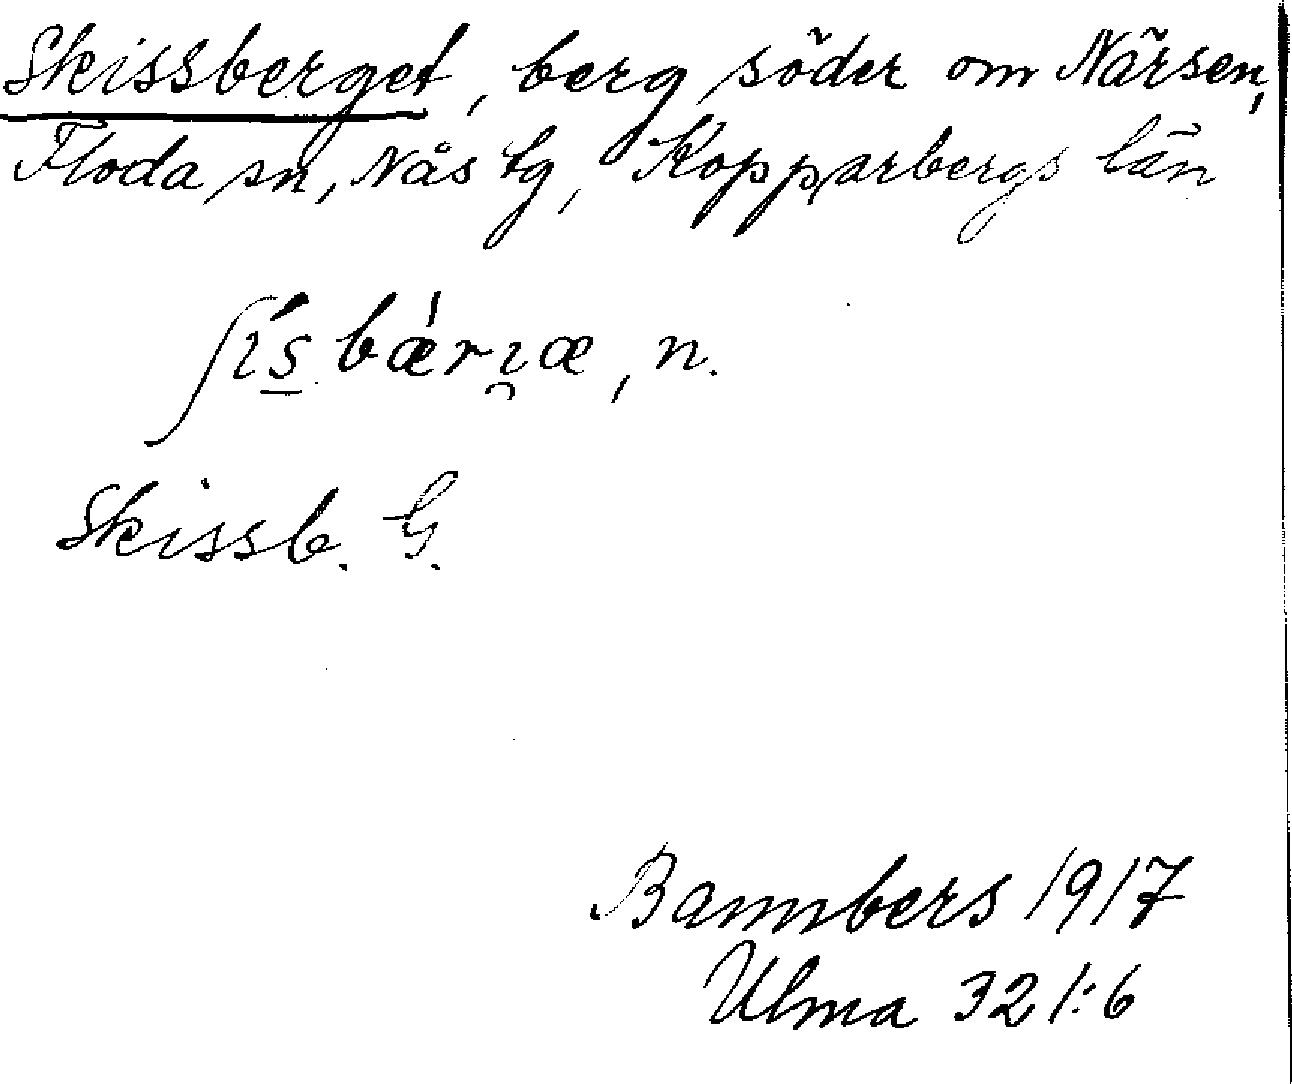 Skissberget, berg söder om Närsen,
Floda sn, Nås tg, Kopparbergs län
ʃı́s̲bǽrı̯æ, n.
Skissb. G.
Bannbers 1917
Ulma 321:6